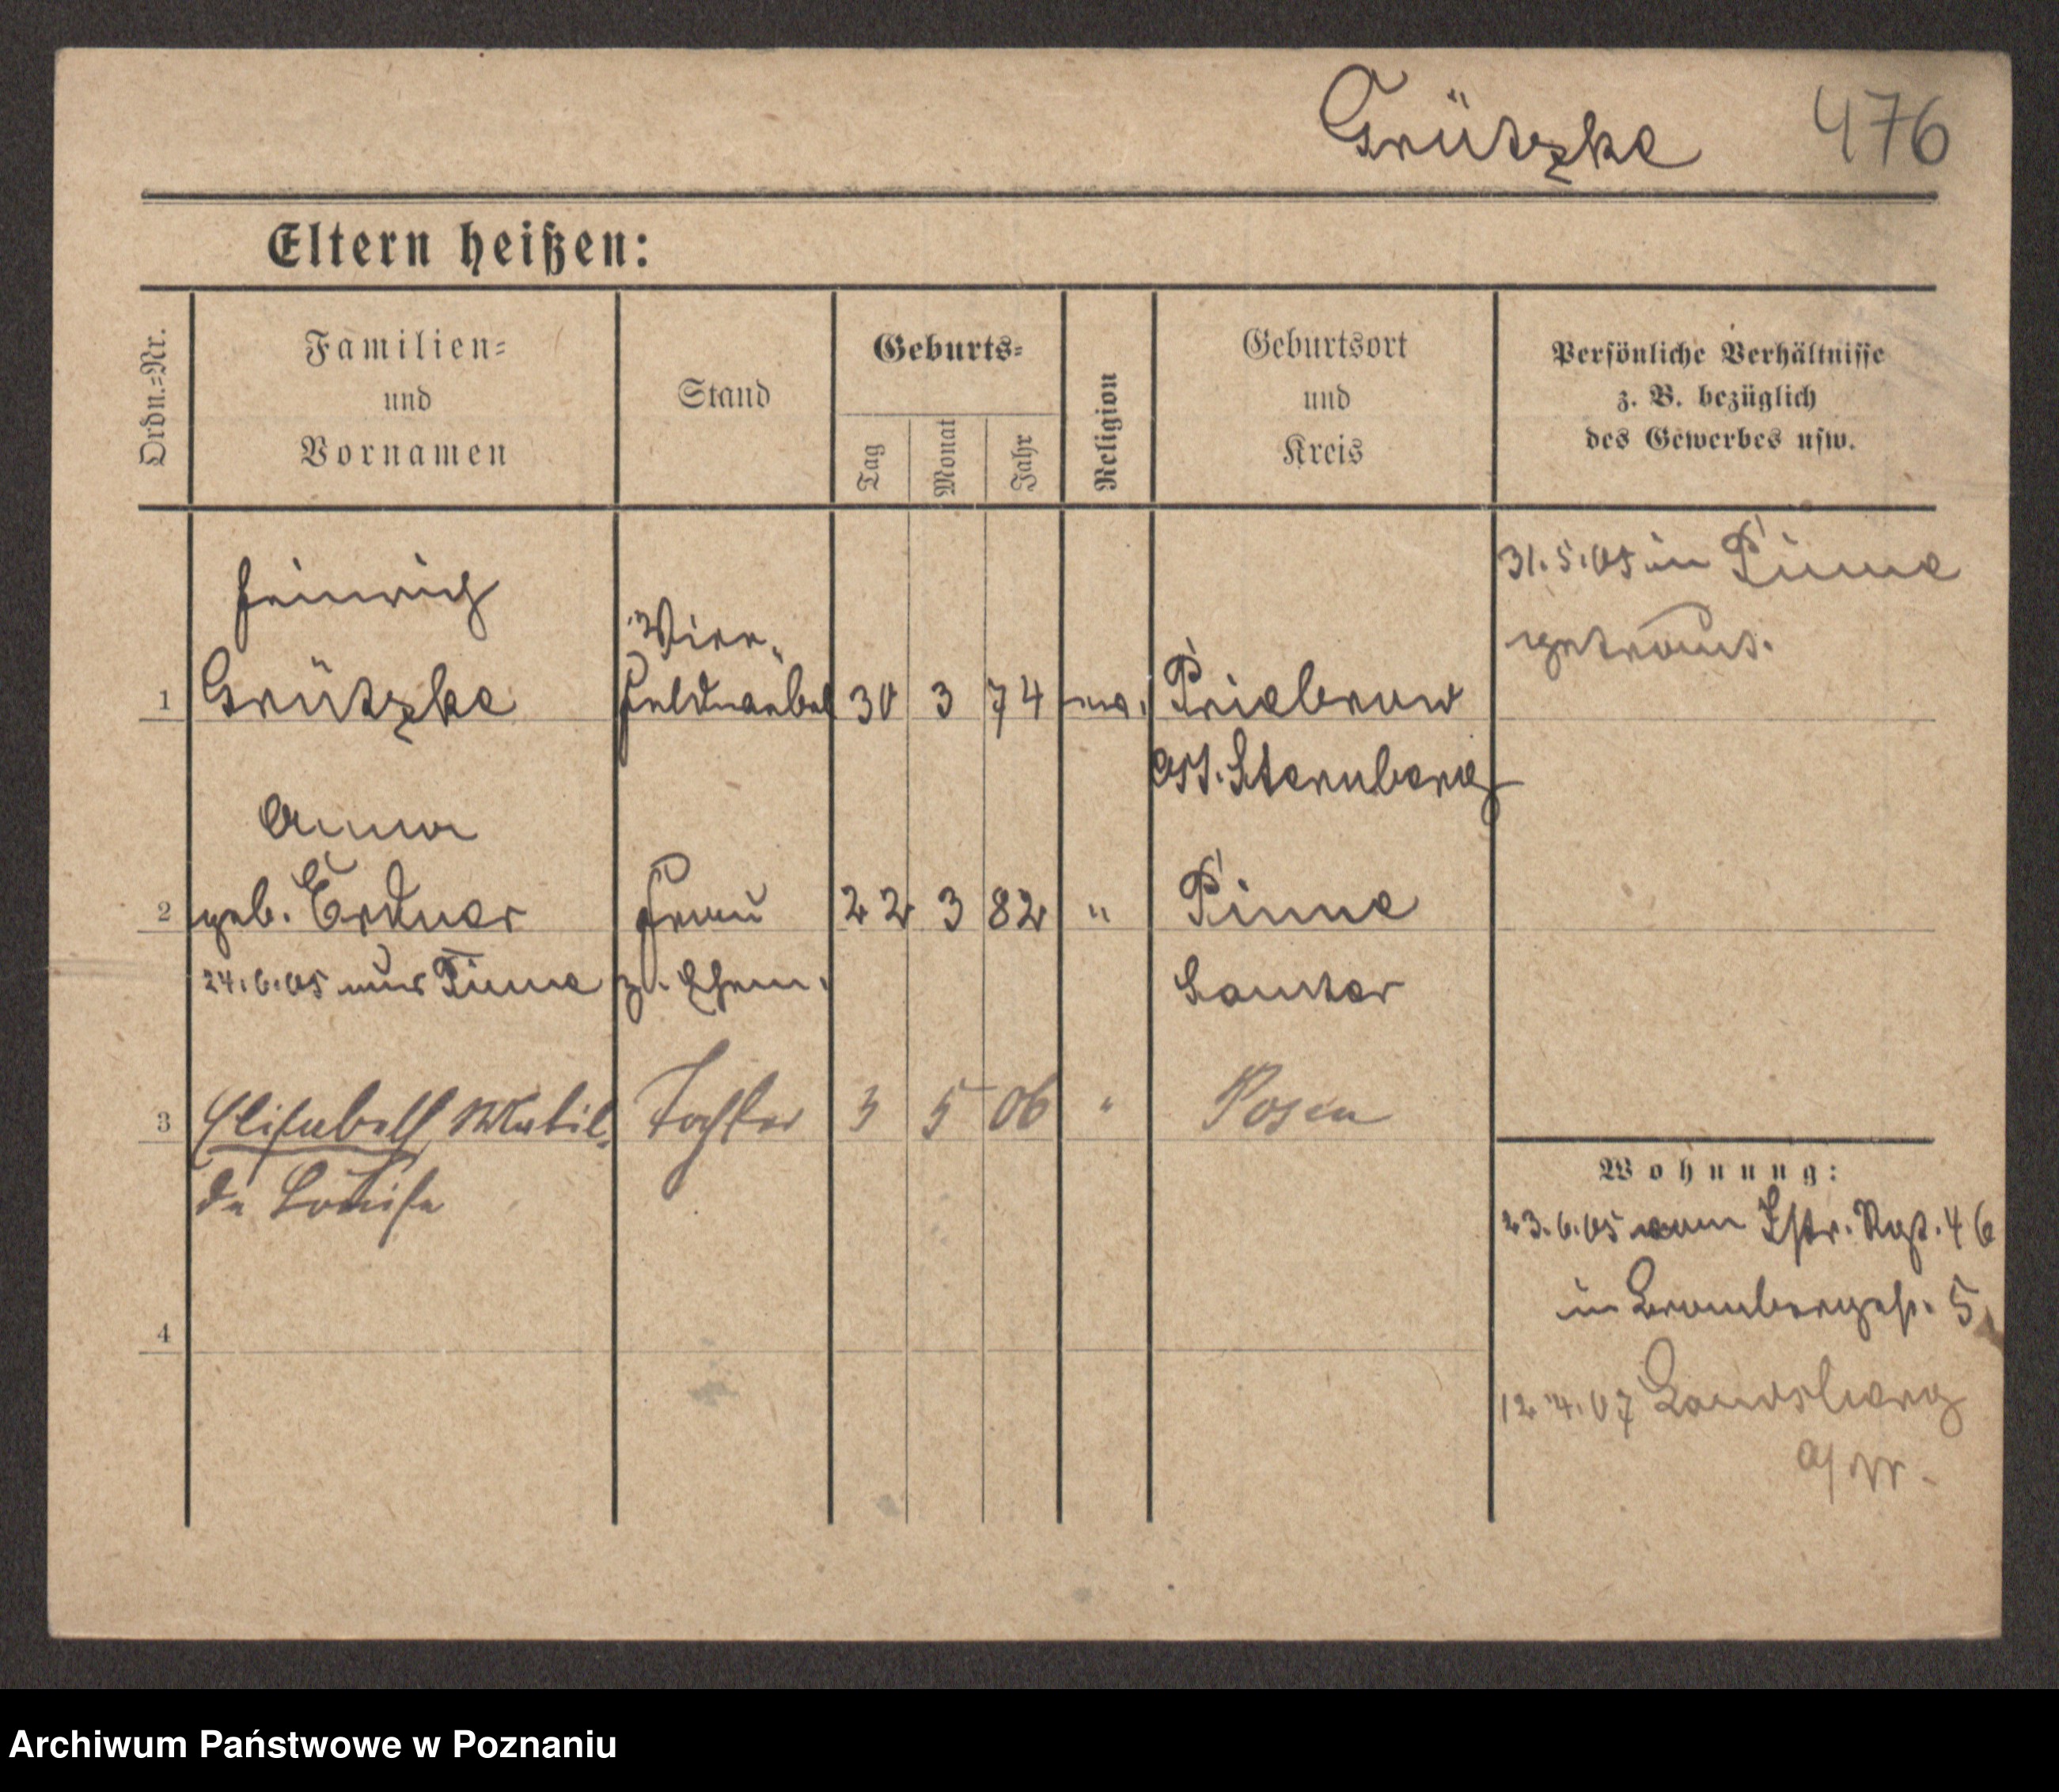 Grützke 476
Eltern heißen:
Ordn.=Nr.
Familien=
und
Vornamen
Stand
Geburts=
Tag
Monat
Jahr
Religion
Geburtsort
und
Kreis
Persönliche Verhältnisse
z. B. bezüglich
des Gewerbes usw.
31.5.05 in Pinne
getraut.
1
Heinrich
Grützke
Feldwebel
30 3 74
Priebrow
Ost. Sternberg
2
Anna
geb. Erdner
Frau
22 3 82 "
Pinne
Samter
24.6.05 aus Pinne z. Ehem.
3
Elisabeth Mathil-
de Louise
Tochter
3 5 06 "
Posen
4
Wohnung:
23.6.05 vom Rgt. 46
in Brombergerstr. 5
12.4.07 Landsberg
a/W.